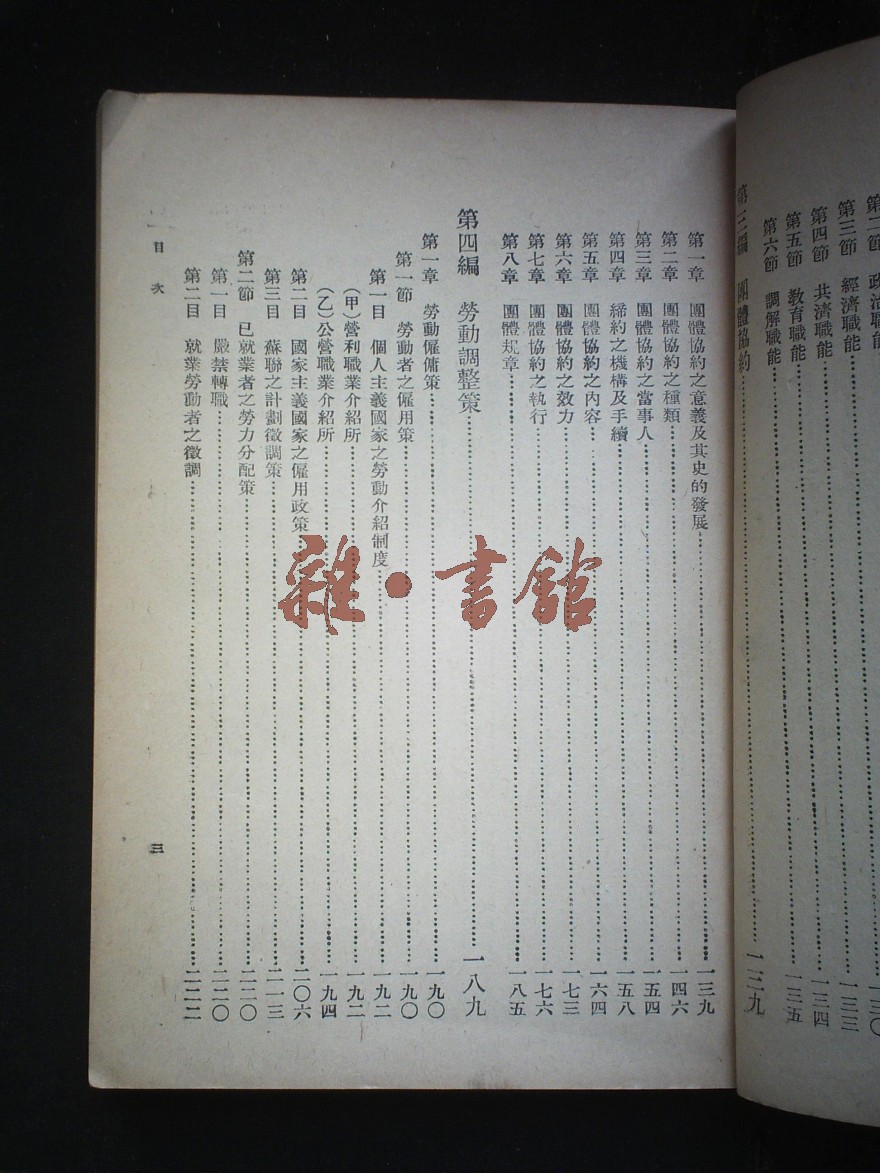 第二節 政治職能……一三〇
第三節 經濟職能……一三三
第四節 共濟職能……一三四
第五節 教育職能……一三五
第六節 調解職能
第三編 團體協約……一三九
第一章 團體協約之意義及其史的發展……一三九
第二章 團體協約之種類……一四六
第三章 團體協約之當事人……一五四
第四章 締約之機構及手續……一五八
第五章 團體協約之內容……一六四
第六章 團體協約之效力……一七三
第七章 團體協約之執行……一七六
第八章 團體規章……一八五
第四編 勞動調整策……一八九
第一章 勞動僱傭策……一九〇
第一節 勞動者之僱用策……一九〇
第一目 個人主義國家之勞動介紹制度……一九二
(甲)營利職業介紹所……一九二
(乙)公營職業介紹所……一九四
第二目 國家主義國家之僱用政策……二〇六
第三目 蘇聯之計劃徵調策……二一三
第二節 已就業者之勞力分配策……二二〇
第一目 嚴禁轉職……二二〇
第二目 就業勞動者之徵調……二二二
目次
三
雜·書館